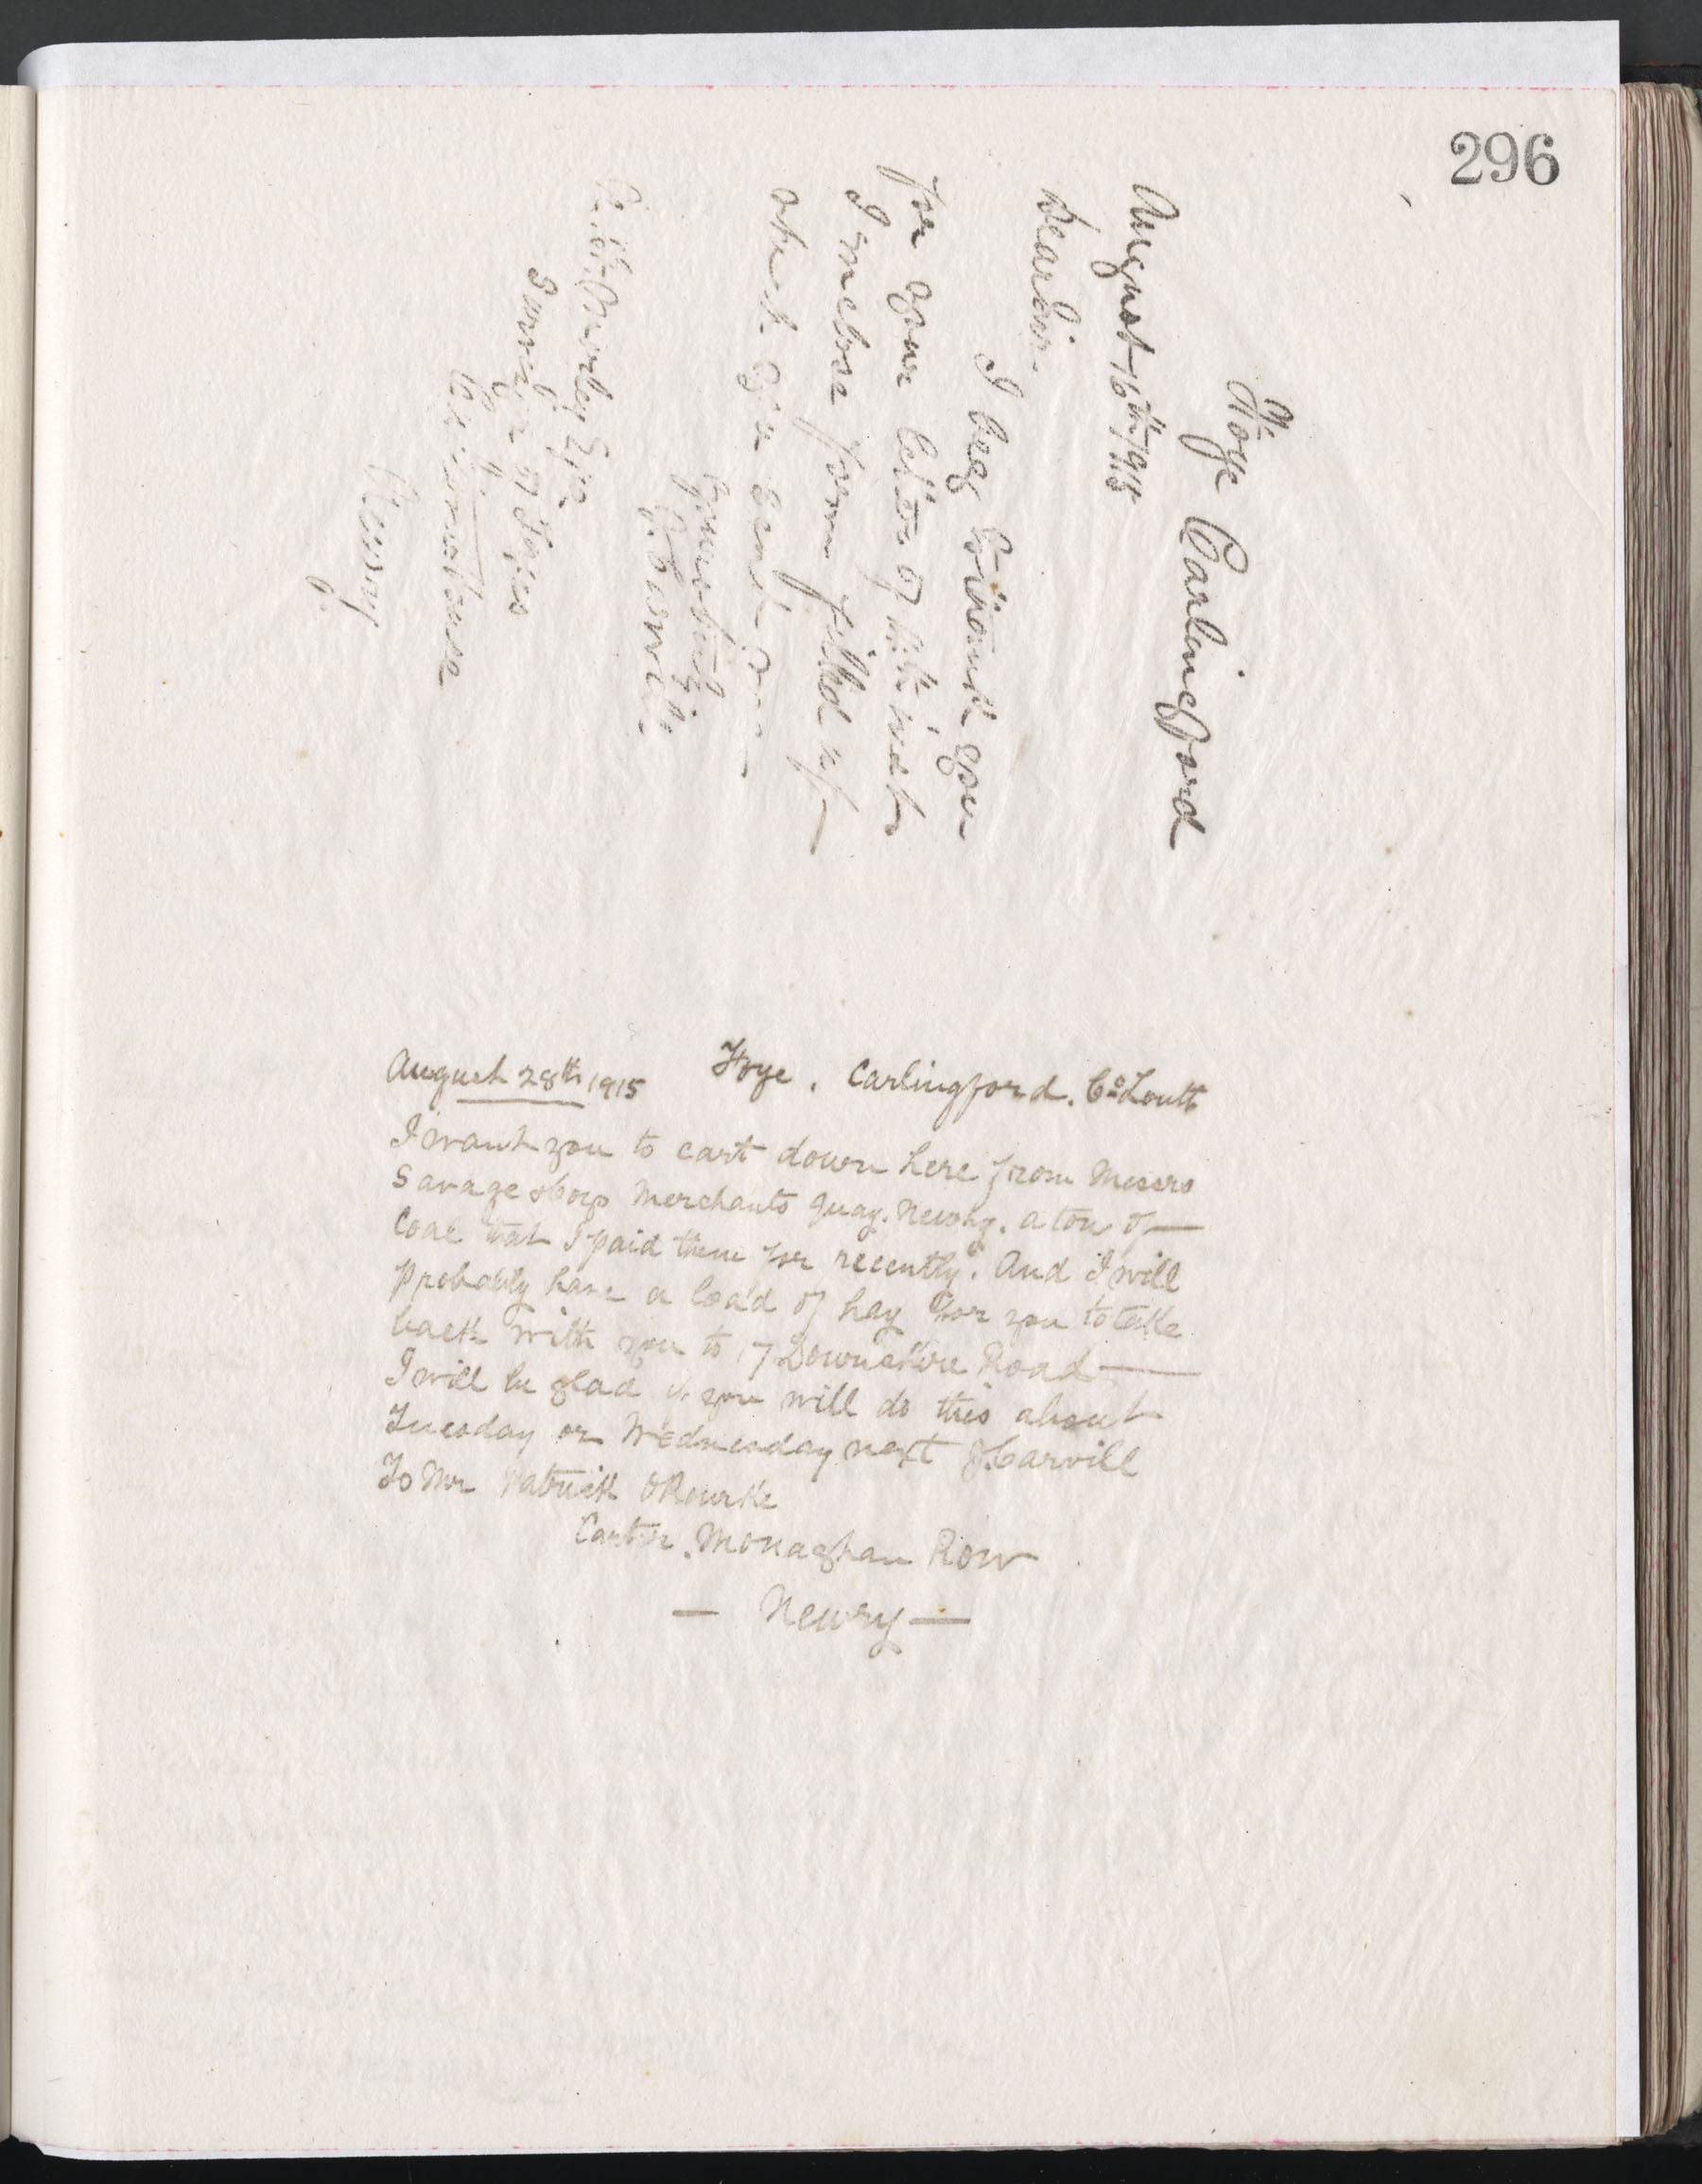 296
Foye Carlingford
August 16th 1915
Dear Sir.
I beg to thank you
for your letter of 14th inst
I enclose form filled up
Yours truly
J. Carvill
Morley Esqr
Surveyor of Taxes
Custom House
Newry
August 28th 1915 Foye. Carlingford. Co Louth
I want you to cart down here from Messrs
Savage Bors Merchants Quay. Newry. a ton of —
Coal that I paid them for recently. And I will
probably have a load of hay for you to take
back with you to 17 Downshire Road —
I will be glad if you will do this about
Tuesday or Wednesday next J. Carvill
To Mr Patrick O Rourke
Carter. Monaghan Row
— Newry —